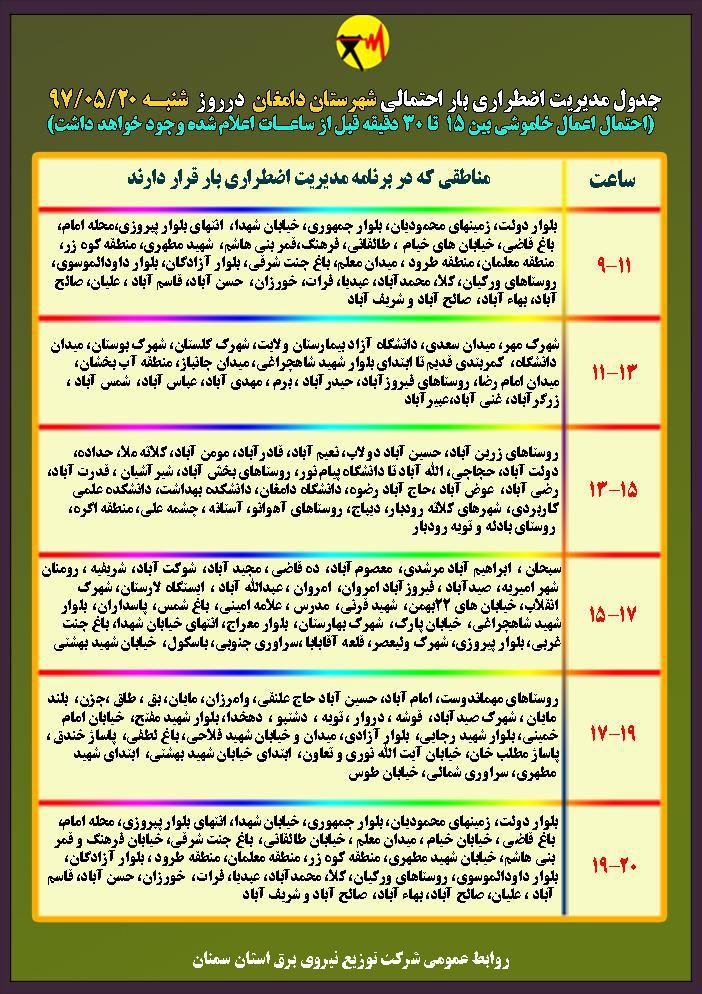 جدول مدیریت اضطراری بار احتمالی شهرستان دامغان در روز شنبــه ۹۷/۰۵/۲۰
(احتمال اعمال خاموشی بین ۱۵ تا ۳۰ دقیقه قبل از ساعــات اعلام شده وجود خواهد داشت)
ساعت
مناطقی که در برنامه مدیریت اضطراری بار قرار دارند
۹-۱۱
بلوار دولت، زمینهای محمودیان، بلوار جمهوری، خیابان شهدا، انتهای بلوار پیروزی،محله امام،
باغ قاضی، خیابان های خیام ، طالقانی، فرهنگ،قمر بنی هاشم، شهید مطهری، منطقه کوه زر،
منطقه معلمان، منطقه طرود ، میدان معلم، باغ جنت شرقی، بلوار آزادگان، بلوار داودالموسوی،
روستاهای ورکیان، کلا، محمدآباد، عبدیا، فرات، خورزان، حسن آباد، قاسم آباد ، علیان، صالح
آباد، بهاء آباد، صالح آباد و شریف آباد
۱۱-۱۳
شهرک مهر، میدان سعدی، دانشگاه آزاد بیمارستان ولایت، شهرک گلستان، شهرک بوستان، میدان
دانشگاه، کمربندی قدیم تا ابتدای بلوار شهید شاهچراغی، میدان جانباز، منطقه آب بخشان،
میدان امام رضا، روستاهای فیروزآباد، حیدرآباد ، برم ، مهدی آباد، عباس آباد، شمس آباد ،
زرگرآباد، غنی آباد،عبیرآباد
۱۳-۱۵
روستاهای زرین آباد، حسین آباد دولاب، نعیم آباد، قادرآباد، مومن آباد، کلاته ملا، حداده،
دولت آباد، حجاجی، الله آباد تا دانشگاه پیام نور، روستاهای بخش آباد، شیرآشیان ، قدرت آباد،
رضی آباد، عوض آباد ،حاج آباد رضوه، دانشگاه دامغان، دانشکده بهداشت، دانشکده علمی
کاربردی، شهرهای کلاته رودبار، دیباج، روستاهای آهوانو، آستانه ، چشمه علی، منطقه اکره،
روستای بادله و تویه رودبار
۱۵-۱۷
سیحان ، ابراهیم آباد مرشدی، معصوم آباد، ده قاضی ، مجید آباد، شوکت آباد، شریفیه ، رومنان
شهر امیریه، صیدآباد ، فیروزآباد امروان، امروان ، عبدالله آباد ، ایستگاه لارستان، شهرک
انقلاب، خیابان های ۲۲بهمن، شهید قرنی، مدرس ، علامه امینی، باغ شمس، پاسداران، بلوار
شهید شاهچراغی، خیابان پارک، شهرک بهارستان، بلوار معراج، انتهای خیابان شهدا، باغ جنت
غربی، بلوار پیروزی، شهرک ولیعصر، قلعه آقابابا، سراوری جنوبی، باسکول، خیابان شهید بهشتی
۱۷-۱۹
روستاهای مهماندوست، امام آباد، حسین آباد حاج علینقی، وامرزان، مایان، بق ، طاق ، جزن، بلند
مایان ، شهرک صیدآباد، قوشه ، دروار ، تویه ، دشتبو ، دهخدا، بلوار شهید مفتح، خیابان امام
خمینی، بلوار شهید رجایی، بلوار آزادی، میدان و خیابان شهید فلاحی، باغ لطفی، پاساژ خندق ،
پاساژ مطلب خان، خیابان آیت الله نوری و تعاون، ابتدای خیابان شهید بهشتی، ابتدای شهید
مطهری، سراوری شمالی، خیابان طوس
۱۹-۲۰
بلوار دولت، زمینهای محمودیان، بلوار جمهوری، خیابان شهدا، انتهای بلوار پیروزی، محله امام،
باغ قاضی ، خیابان خیام ، میدان معلم ، خیابان طالقانی، باغ جنت شرقی، خیابان فرهنگ و قمر
بنی هاشم، خیابان شهید مطهری، منطقه کوه زر، منطقه معلمان، منطقه طرود ، بلوار آزادگان،
بلوار داودالموسوی، روستاهای ورکیان، کلا، محمدآباد، عبدیا، فرات، خورزان، حسن آباد، قاسم
آباد ، علیان، صالح آباد، بهاء آباد، صالح آباد و شریف آباد
روابط عمومی شرکت توزیع نیروی برق استان سمنان